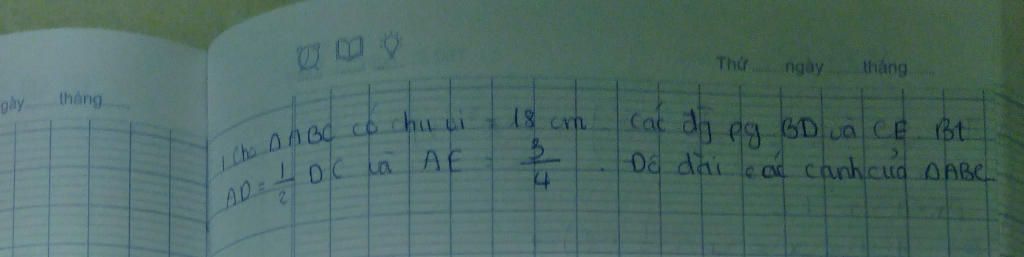 Thứ ngày tháng
gày tháng
1, Cho ΔABC có chu vi = 18 cm các đg pg BD và CE Bt
AD = 1/2 DC và AE = 3/4 . Độ dài các cạnh của ΔABC